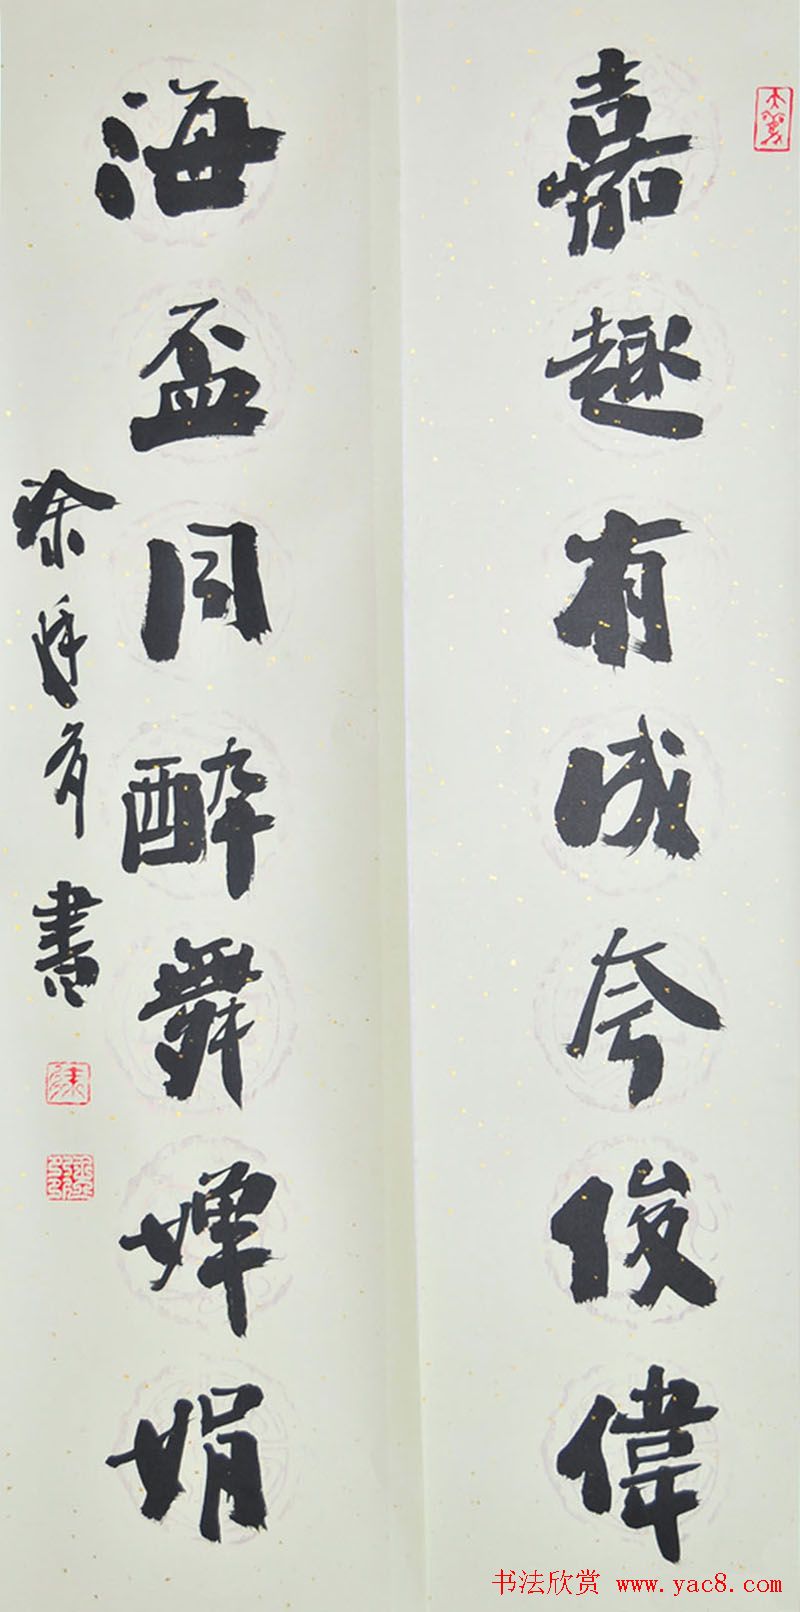 嘉趣有成夸俊偉
海盃同醉舞婵娟
書
书法欣赏 www.yac8.com